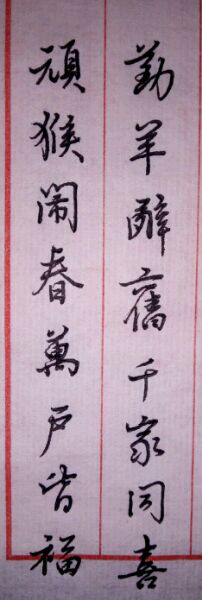 勤羊辭舊千家同喜
頑猴闹春萬户皆福